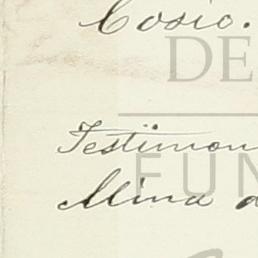 Cosio.
DE
Testimon
FUN
Mina d